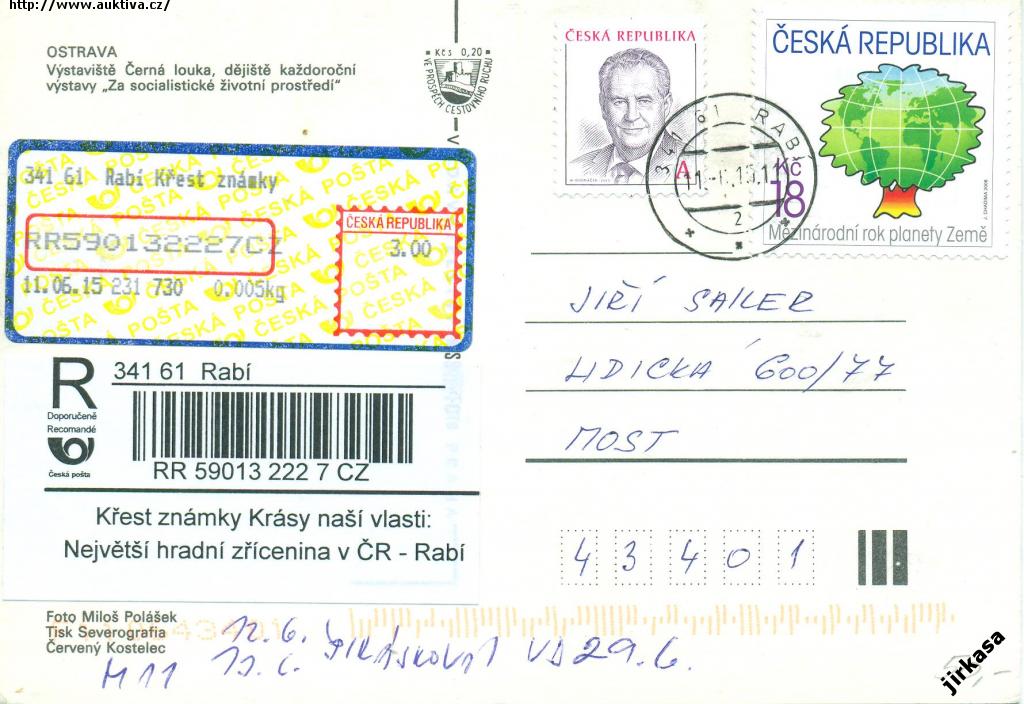 http://www.auktiva.cz/
OSTRAVA
Výstaviště Černá louka, dějiště každoroční
výstavy „Za socialistické životní prostředí"
Kčs 0,20
VE PROSPĚCH CESTOVNÍHO RUCHU
ČESKÁ REPUBLIKA
A
ČESKÁ REPUBLIKA
Kč
18
Mezinárodní rok planety Země
341 61 RABÍ
2
341 61 Rabí Křest známky
RR590132227CZ
ČESKÁ REPUBLIKA
3.00
11.06.15 231 730 0.005kg
ČESKÁ POŠTA
R
Doporučeně
Recomandé
Česká pošta
341 61 Rabí
RR 59013 222 7 CZ
Křest známky Krásy naší vlasti:
Největší hradní zřícenina v ČR - Rabí
JIŘÍ SAILER
LIDICKÁ 600/77
MOST
43401
Foto Miloš Polášek
Tisk Severografia
Červený Kostelec
12.6.
M11
VD 29.6.
jirkasa